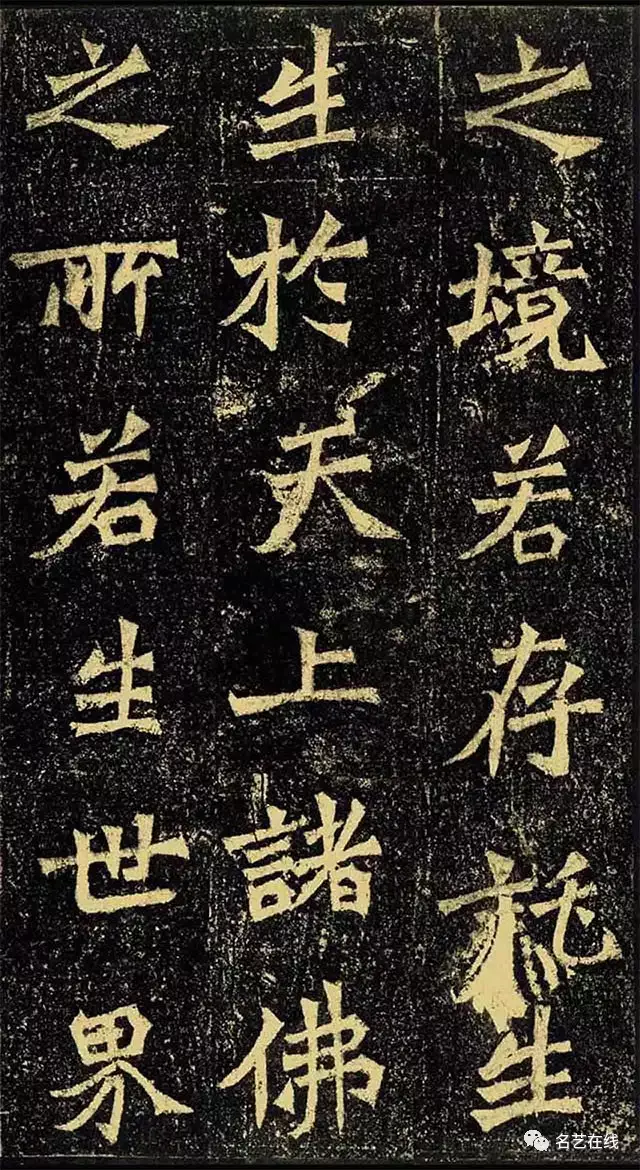 之境若存託生
生於天上諸佛
之所若生世界
名艺在线